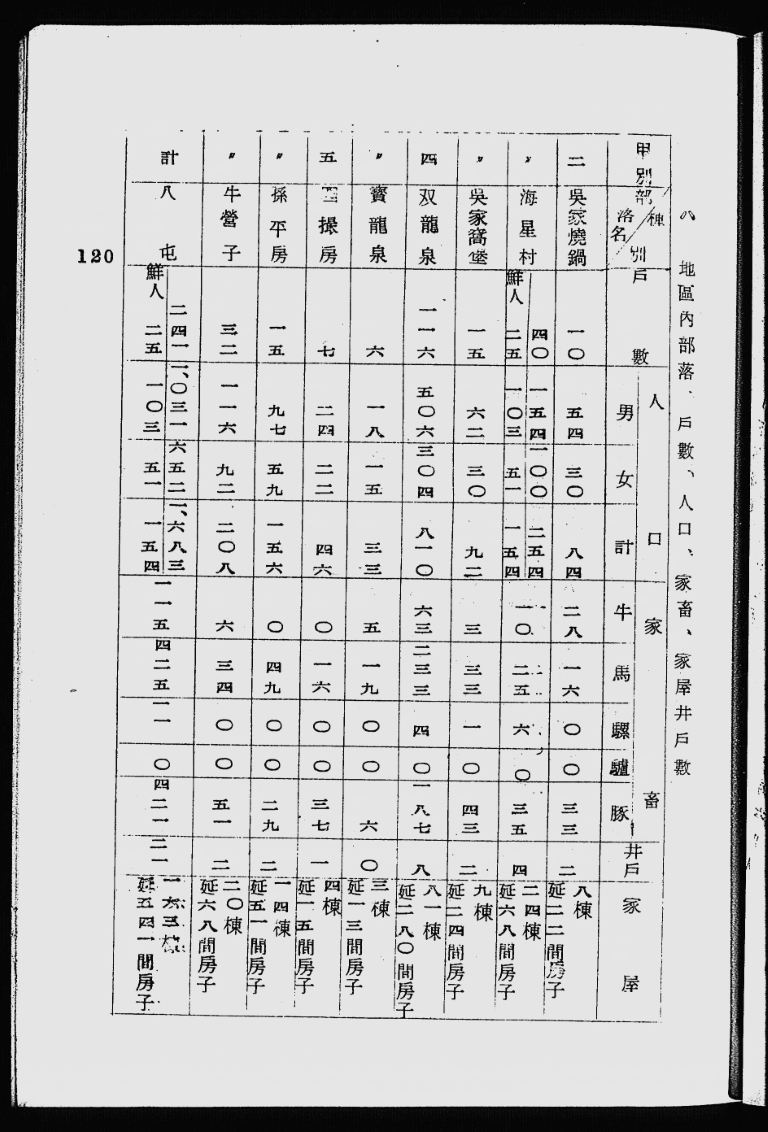 八 地區內部落、戶數、人口、家畜、家屋井戶數
甲別 部落名 棟別 戶數 人口 男 女 計 家畜 牛 馬 騾 驢 豚 井戶 家屋
二 吳家燒鍋 一〇 五四 三〇 八四 二八 一六 〇 〇 三三 二 八棟 延二二間房子
〃 海星村 四〇 一五四 一〇〇 二五四
鮮人 二五 一〇三 五一 一五四 一〇 二五 六 〇 三五 四 二四棟 延六八間房子
〃 吳家窩堡 一五 六二 三〇 九二 三 三三 一 〇 四三 二 九棟 延二四間房子
四 双龍泉 一一六 五〇六 三〇四 八一〇 六三 二三三 四 〇 一八七 八 八一棟 延二八〇間房子
〃 寶龍泉 六 一八 一五 三三 五 一九 〇 〇 六 〇 三棟 延一三間房子
五 操房 七 二四 二二 四六 〇 一六 〇 〇 三七 一 四棟 延一五間房子
〃 孫平房 一五 九七 五九 一五六 〇 四九 〇 〇 二九 二 一四棟 延五一間房子
〃 牛營子 三二 一一六 九二 二〇八 六 三四 〇 〇 五一 二 二〇棟 延六八間房子
計 八屯 二四一 一、〇三一 六五二 一、六八三
鮮人 二五 一〇三 五一 一五四 一一五 四二五 一一 〇 四二一 二一 一六三棟 延五四一間房子
120